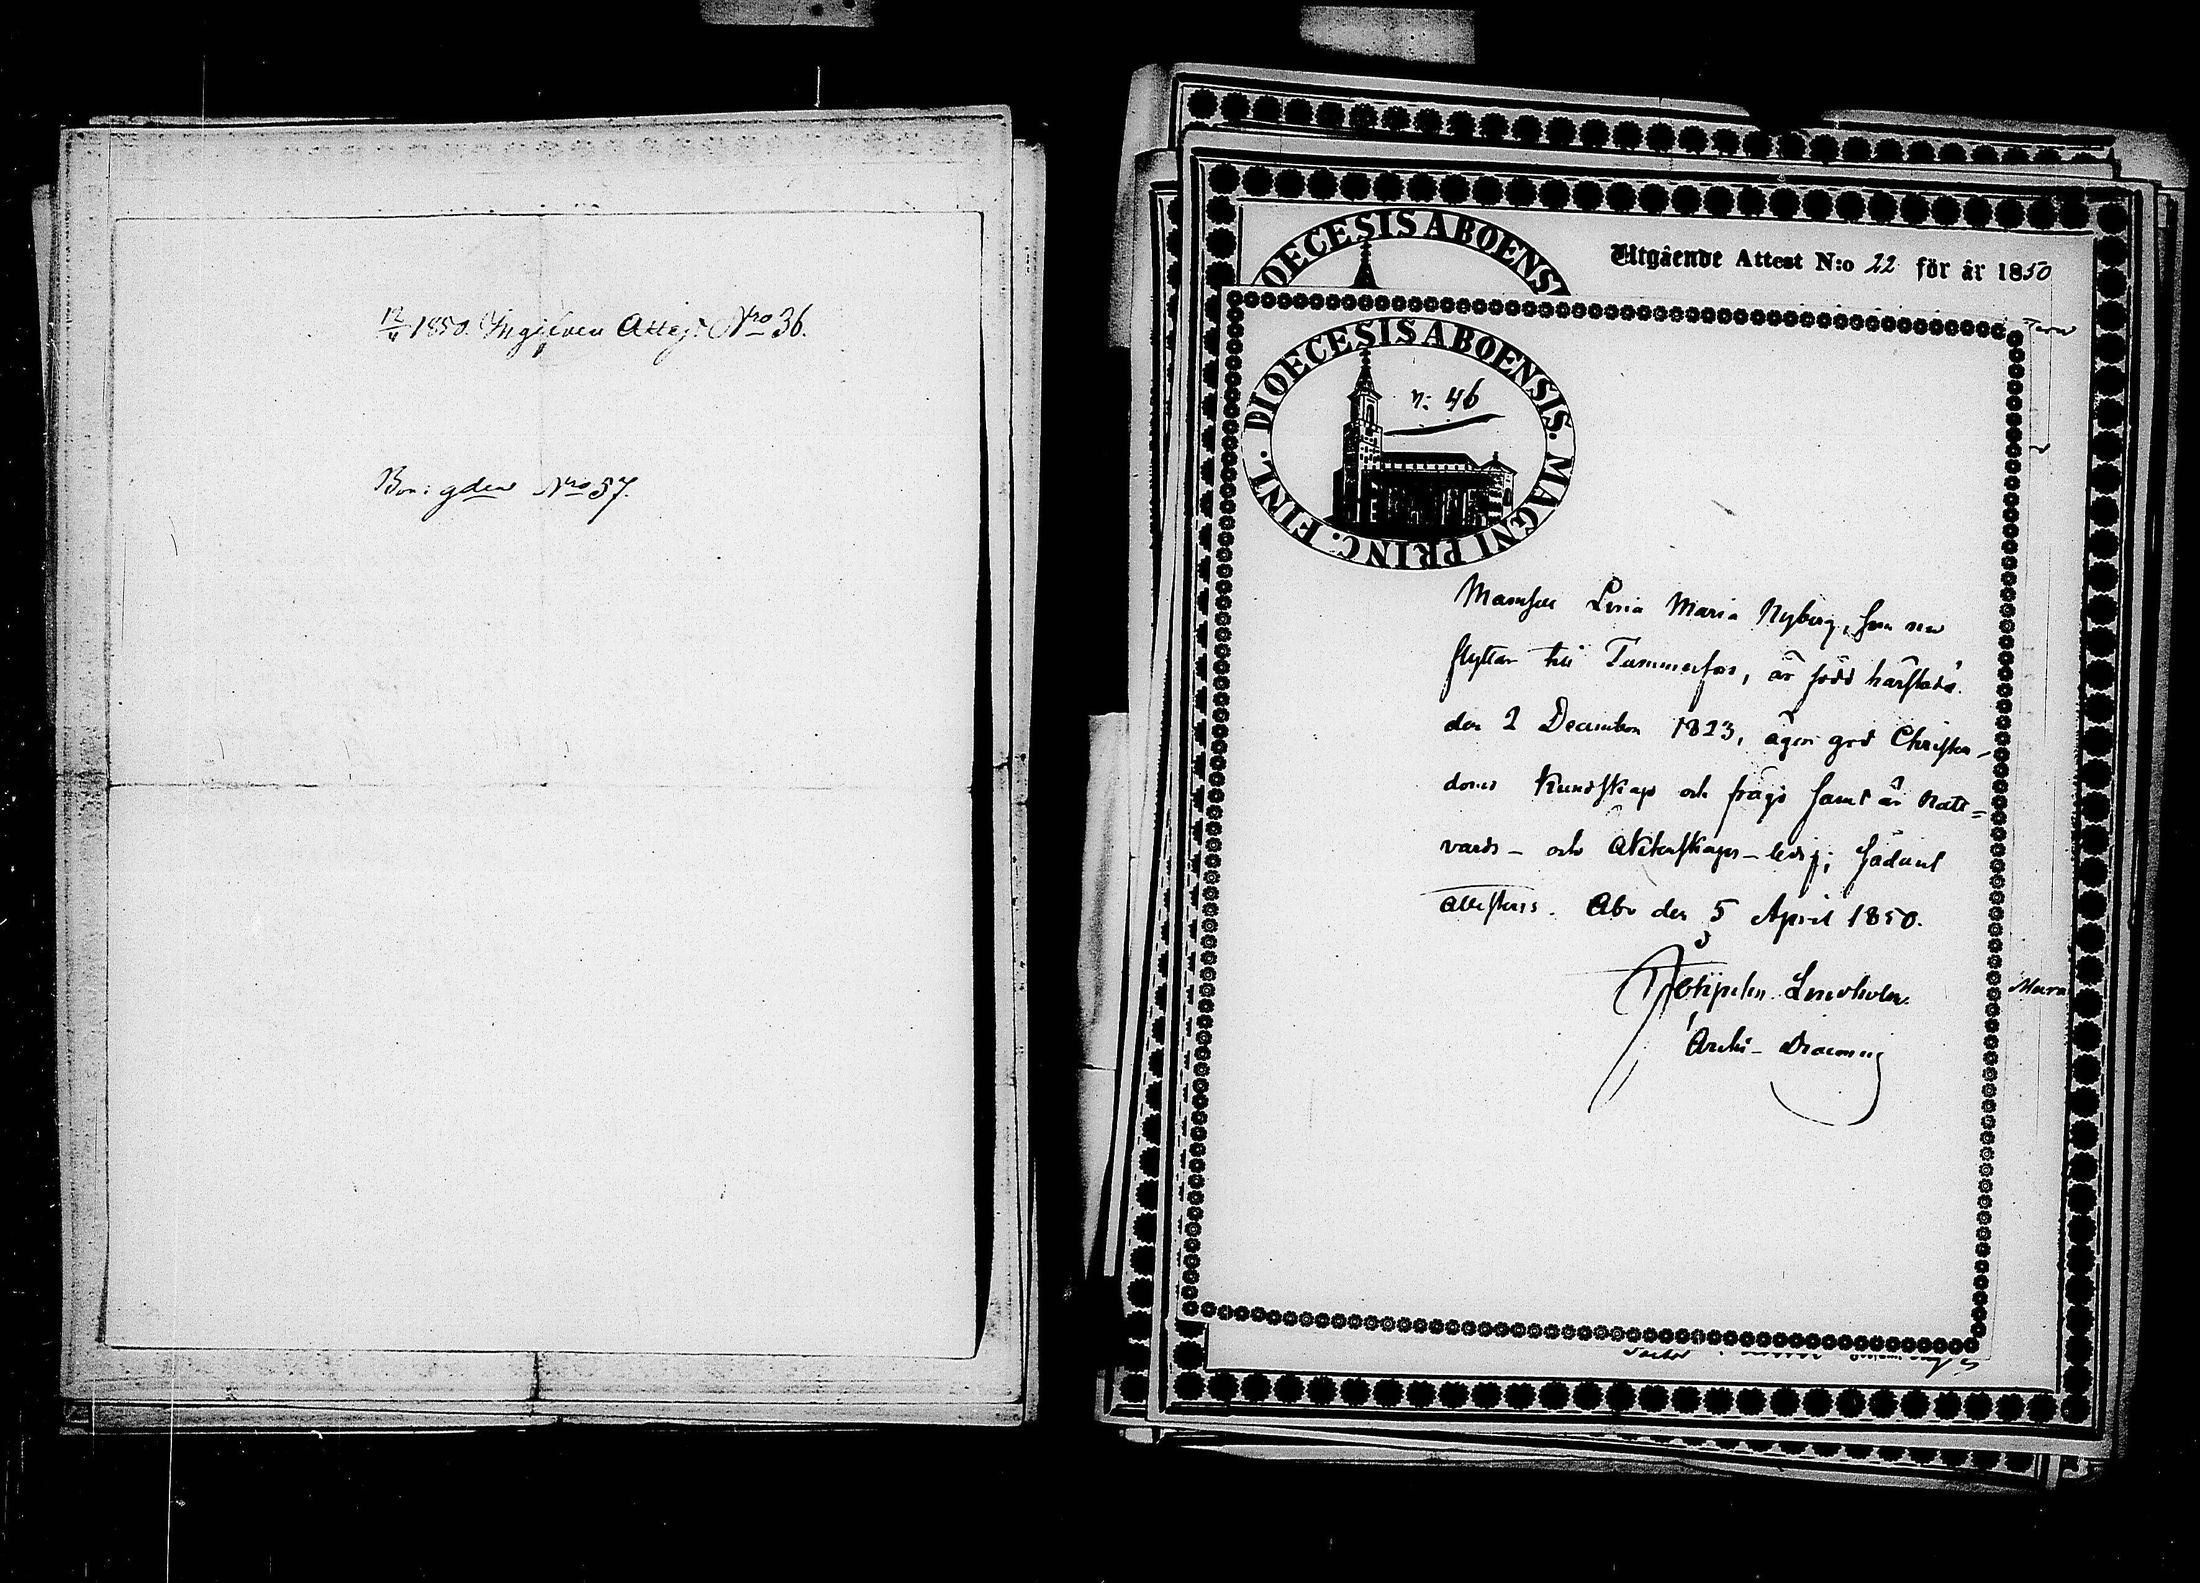 12/4 1850. Ingifven Attest Nro 36.
Nro 57.
DIOECESIS ABOENS
Utgående Attest N:o 22 för år 1850
DIOECESIS ABOENSIS. MAGNI PRINC. FINL.
n: 46
Mamsell Maria Nyberg, som nu
flyttar till Tammerfors, är född härstädes
den 2 December 1823, äger god Christen-
doms kunskap och frägd samt är Natt-
vards- och äktenskaps-ledig; sådant
attesteras. Åbo den 5 April 1850.
Lindholm.